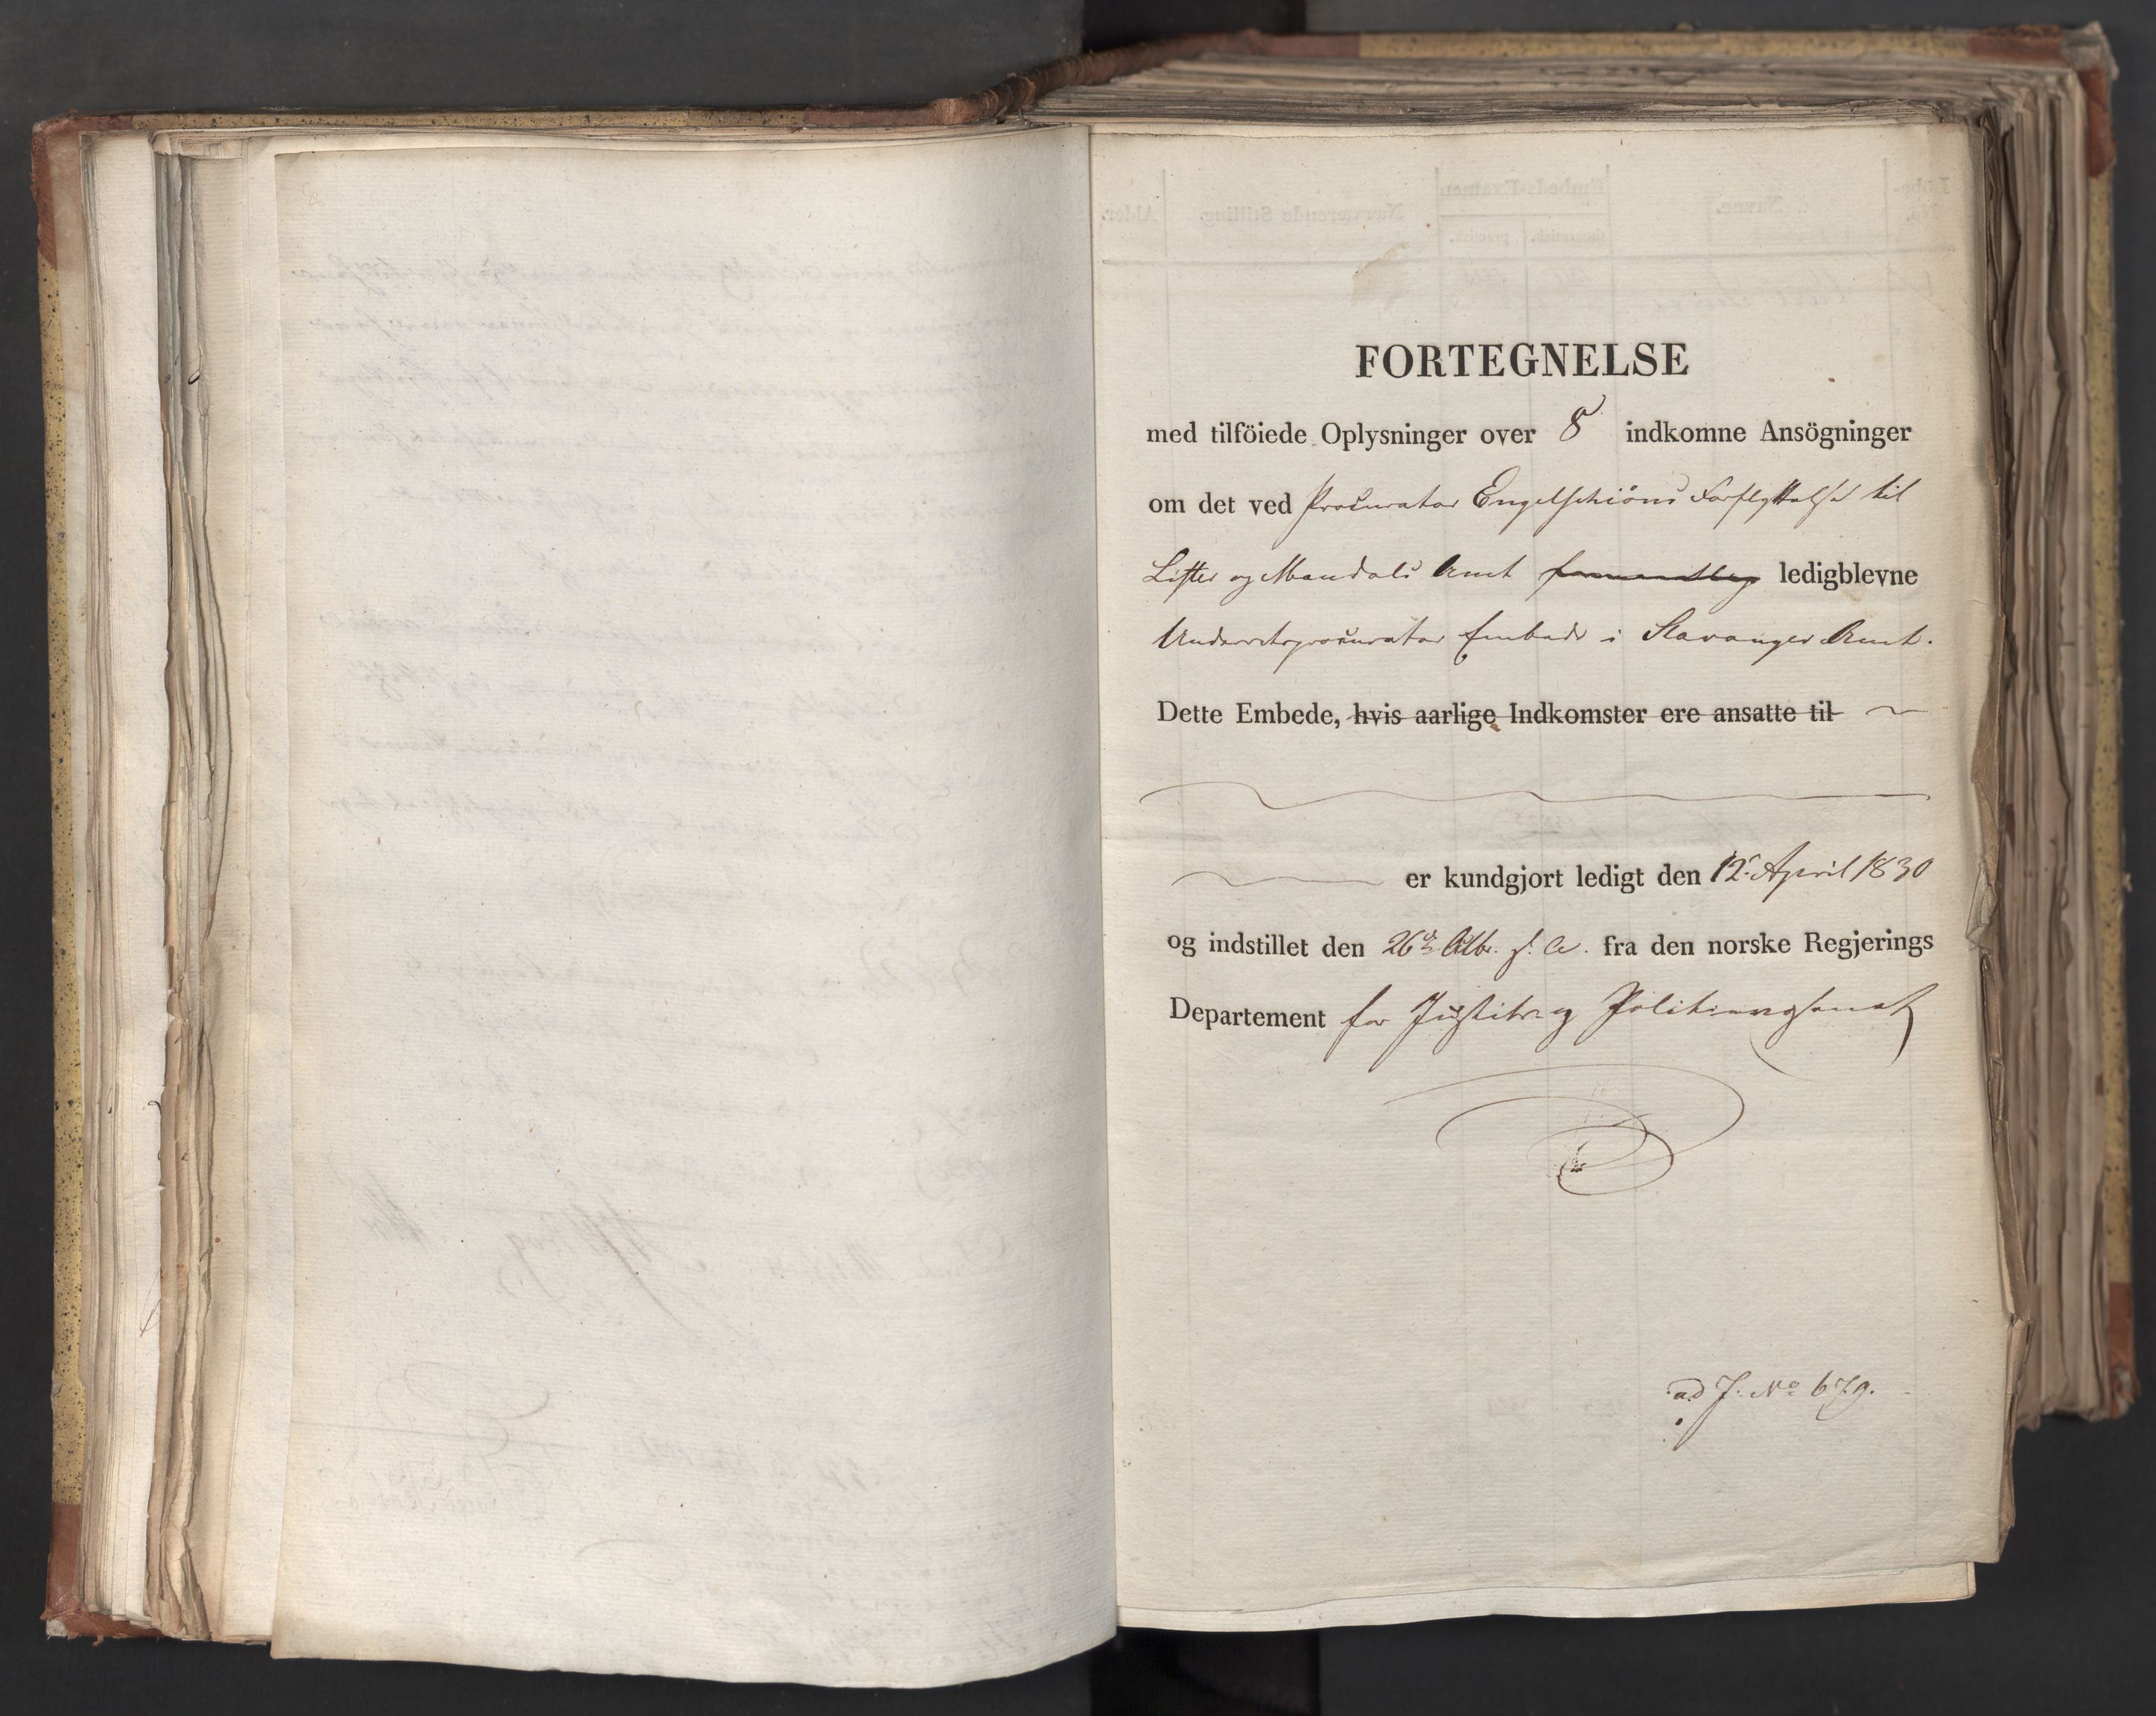 FORTEGNELSE
med tilföiede Oplysninger over 8 indkomne Ansögninger
om det ved Procurator Engelschiöns Forflyttelse til
Lister og Mandals Amt ledigblevne
Underretsprocurator Embede i Stavanger Amt.
Dette Embede, hvis aarlige Indkomster ere ansatte til
er kundgjort ledigt den 12. April 1830
og indstillet den 26de s. A. fra den norske Regjerings
Departement for Justits- og Politievæsenet
ad J. No 679.